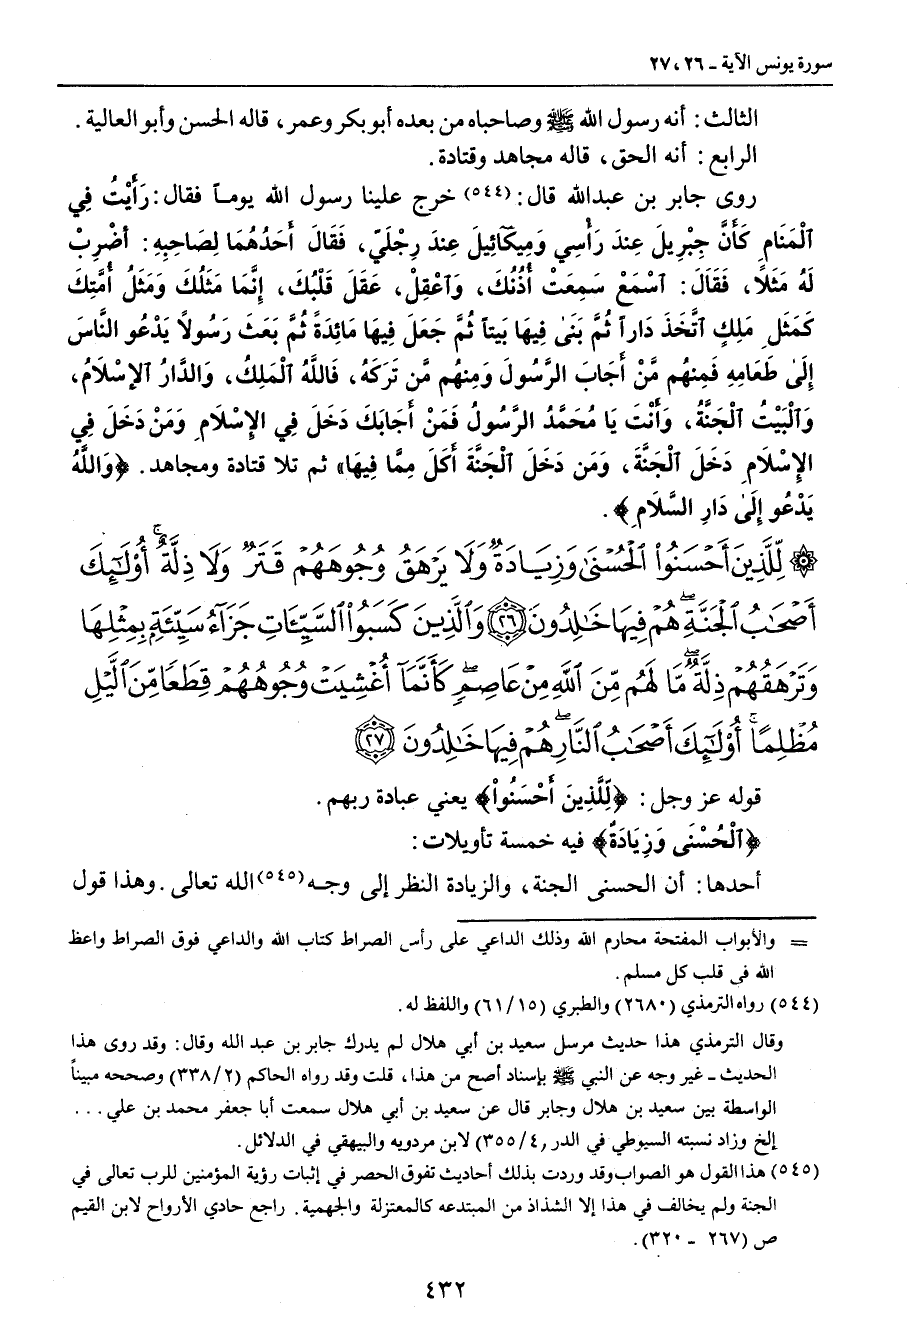 سورة يونس الآية ـ ٢٦، ٢٧
الثالث: أنه رسول الله ﷺ وصاحباه من بعده أبو بكر وعمر، قاله الحسن وأبو العالية.
الرابع: أنه الحق، قاله مجاهد وقتادة.
روى جابر بن عبدالله قال:(٥٤٤) خرج علينا رسول الله يوماً فقال: رَأَيْتُ فِي
الْمَنَامِ كَأَنَّ جِبْرِيلَ عِندَ رَأْسِي وَمِيكَائِيلَ عِندَ رِجْلَيَّ، فَقَالَ أَحَدُهُمَا لِصَاحِبِهِ: أضْرِبْ
لَهُ مَثَلاً، فَقَالَ: اسْمَعْ سَمِعَتْ أُذُنُكَ، وَاعْقِلْ، عَقَلَ قَلْبُكَ، إِنَّمَا مَثَلُكَ وَمَثَلُ أُمَّتِكَ
كَمَثَلِ مَلِكٍ اتَّخَذَ دَاراً ثُمَّ بَنَىٰ فِيهَا بَيتاً ثُمَّ جَعَلَ فِيهَا مَائِدَةً ثُمَّ بَعَثَ رَسُولاً يَدْعُو النَّاسَ
إِلَىٰ طَعَامِهِ فَمِنْهُم مَّنْ أَجَابَ الرَّسُولَ وَمِنْهُم مَّن تَرَكَهُ، فَاللَّهُ الْمَلِكُ، وَالدَّارُ الإِسْلَامُ،
وَالْبَيْتُ الْجَنَّةُ، وَأَنْتَ يَا مُحَمَّدُ الرَّسُولُ فَمَنْ أَجَابَكَ دَخَلَ فِي الإِسْلَامِ وَمَنْ دَخَلَ فِي
الإِسْلَامِ دَخَلَ الْجَنَّةَ، وَمَن دَخَلَ الْجَنَّةَ أَكَلَ مِمَّا فِيهَا» ثم تلا قتادة ومجاهد. ﴿وَاللَّهُ
يَدْعُو إِلَىٰ دَارِ السَّلَامِ﴾.
۞ لِّلَّذِينَ أَحْسَنُوا الْحُسْنَىٰ وَزِيَادَةٌ ۖ وَلَا يَرْهَقُ وُجُوهَهُمْ قَتَرٌ وَلَا ذِلَّةٌ ۚ أُولَٰئِكَ
أَصْحَابُ الْجَنَّةِ ۖ هُمْ فِيهَا خَالِدُونَ ﴿٢٦﴾ وَالَّذِينَ كَسَبُوا السَّيِّئَاتِ جَزَاءُ سَيِّئَةٍ بِمِثْلِهَا
وَتَرْهَقُهُمْ ذِلَّةٌ ۖ مَّا لَهُم مِّنَ اللَّهِ مِنْ عَاصِمٍ ۖ كَأَنَّمَا أُغْشِيَتْ وُجُوهُهُمْ قِطَعًا مِّنَ اللَّيْلِ
مُظْلِمًا ۚ أُولَٰئِكَ أَصْحَابُ النَّارِ ۖ هُمْ فِيهَا خَالِدُونَ ﴿٢٧﴾
قوله عز وجل: ﴿لِّلَّذِينَ أَحْسَنُواْ﴾ يعني عبادة ربهم.
﴿الْحُسْنَى وَزِيَادَةٌ﴾ فيه خمسة تأويلات:
أحدها: أن الحسنى الجنة، والزيادة النظر إلى وجه(٥٤٥) الله تعالى. وهذا قول
= والأبواب المفتحة محارم الله وذلك الداعي على رأس الصراط كتاب الله والداعي فوق الصراط واعظ
الله في قلب كل مسلم.
(٥٤٤) رواه الترمذي (٢٦٨٠) والطبري (٦١/١٥) واللفظ له.
وقال الترمذي هذا حديث مرسل سعيد بن أبي هلال لم يدرك جابر بن عبد الله وقال: وقد روى هذا
الحديث ـ غير وجه عن النبي ﷺ بإسناد أصح من هذا، قلت وقد رواه الحاكم (٣٣٨/٢) وصححه مبيناً
الواسطة بين سعيد بن هلال وجابر قال عن سعيد بن أبي هلال سمعت أبا جعفر محمد بن علي...
إلخ وزاد نسبته السيوطي في الدر (٣٥٥/٤) لابن مردويه والبيهقي في الدلائل.
(٥٤٥) هذا القول هو الصواب وقد وردت بذلك أحاديث تفوق الحصر في إثبات رؤية المؤمنين للرب تعالى في
الجنة ولم يخالف في هذا إلا الشذاذ من المبتدعه كالمعتزلة والجهمية. راجع حادي الأرواح لابن القيم
ص (٢٦٧ ـ ٣٢٠).
٤٣٢